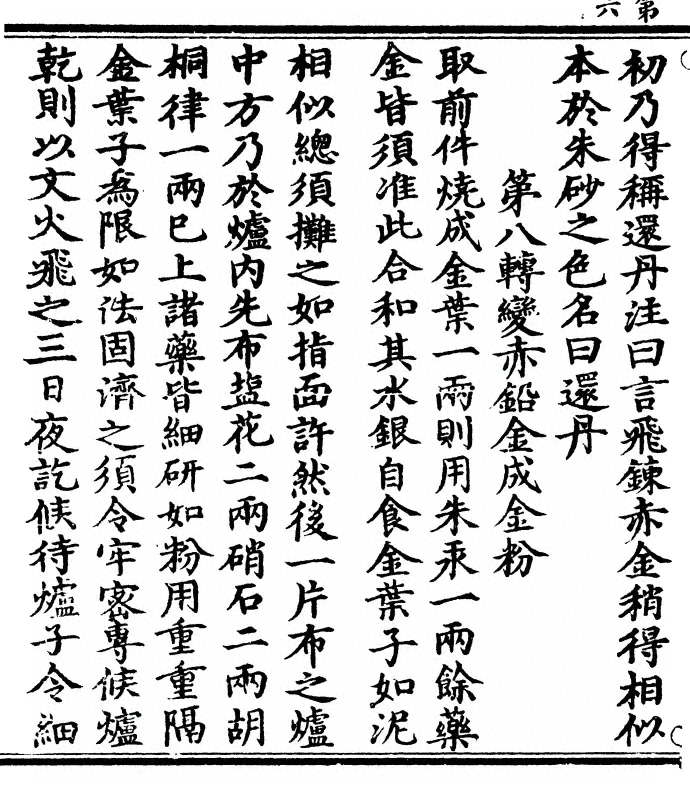 第六
初乃得稱還丹注曰言飛鍊赤金稍得相似
本於朱砂之色名曰還丹
第八轉變赤鉛金成金粉
取前件燒成金葉一兩則用朱汞一兩餘藥
金皆須准此合和其水銀自食金葉子如泥
相似緫須攤之如指面許然後一片布之爐
中方乃於爐内先布塩花二兩硝石二兩胡
桐律一兩巳上諸藥皆細研如粉用重重隔
金葉子為限如法固濟之須令牢密專候爐
乾則以文火飛之三日夜訖候待爐子令細